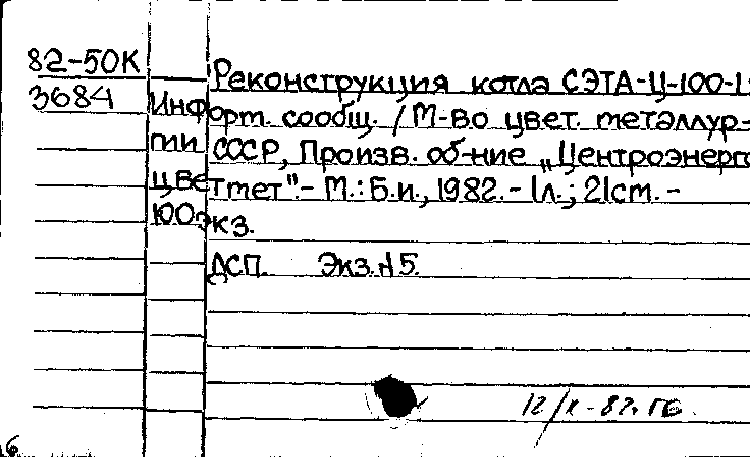 82-50К
3684
Реконструкция котла СЭТА-Ц-100-1
Информ. сообщ. / М-во цвет. металлур-
гии СССР, Произв. об-ние „Центроэнерго
цветмет".- М.: Б.и., 1982. - 1л.; 21см. -
100экз.
ДСП. Экз.№5.
12/X-82. ГБ.